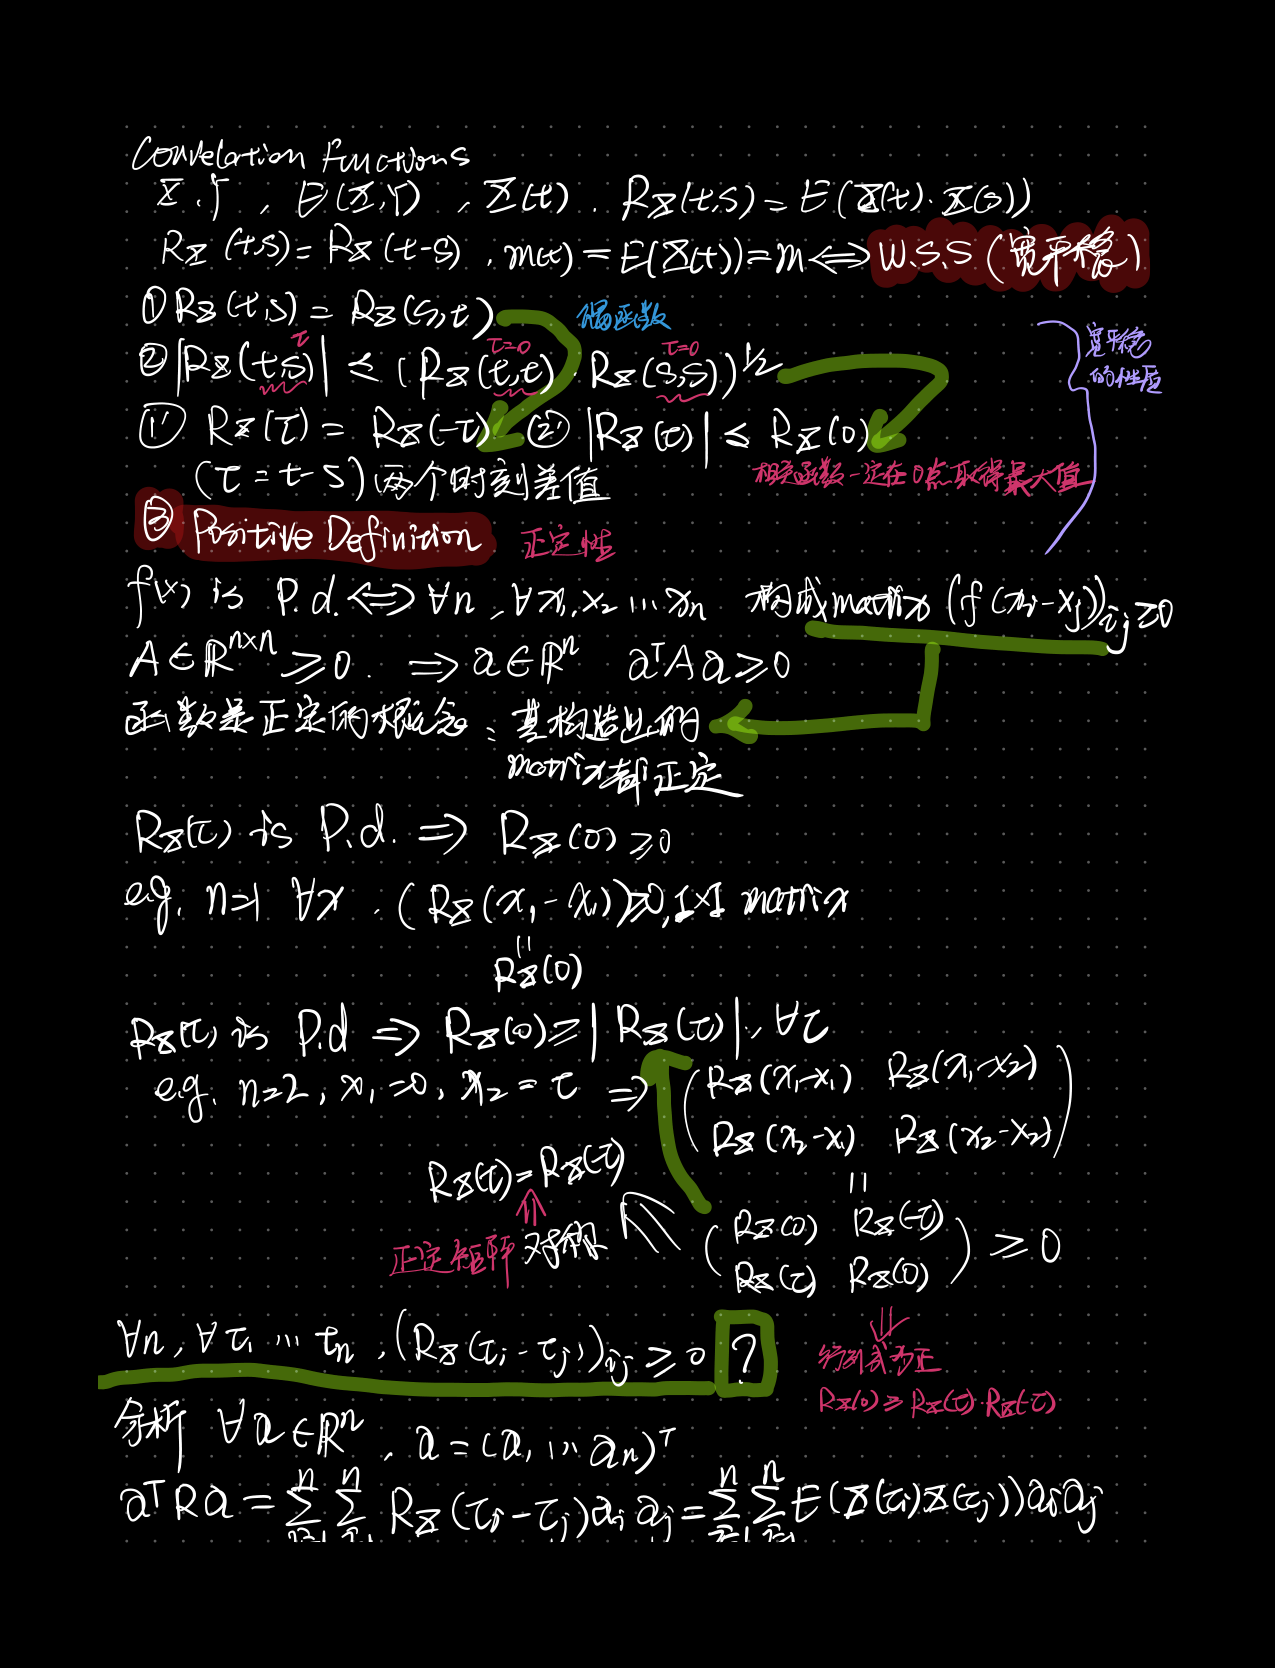 Correlation Functions
X, Y, E(X,Y), X(t). R_X(t,s) = E(X(t)·X(s))
R_X(t,s) = R_X(t-s), m(t) = E(X(t)) = m ⟺ W.S.S (宽平稳)
① R_X(t,s) = R_X(s,t) 偶函数
τ τ=0 τ=0 宽平稳
② |R_X(t,s)| ≤ (R_X(t,t)·R_X(s,s))^{1/2} 的性质
①' R_X(τ) = R_X(-τ) ②' |R_X(τ)| ≤ R_X(0)
(τ = t-s) 两个时刻差值 相关函数一定在0点取得最大值
③ Positive Definition 正定性
f(x) is P.d. ⟺ ∀n, ∀x₁, x₂ ... x_n 构成matrix (f(x_i - x_j))_{ij} ≥ 0
A ∈ ℝ^{n×n} ≥ 0. ⟹ a ∈ ℝ^n a^T A a ≥ 0
函数是正定的概念: 其构造出的
matrix都正定
R_X(τ) is P.d. ⟹ R_X(0) ≥ 0
e.g. n=1 ∀x. (R_X(x₁ - x₁)) ≥ 0, 1×1 matrix
=
R_X(0)
R_X(τ) is P.d ⟹ R_X(0) ≥ |R_X(τ)|, ∀τ
e.g. n=2, x₁=0, x₂=τ ⟹ (R_X(x₁-x₁) R_X(x₁-x₂)
R_X(x₂-x₁) R_X(x₂-x₂))
R_X(τ) = R_X(-τ) =
正定矩阵 对称 (R_X(0) R_X(-τ)
R_X(τ) R_X(0)) ≥ 0
∀n, ∀τ₁ ... τ_n, (R_X(τ_i - τ_j))_{ij} ≥ 0 ?
行列式为正
R_X(0) ≥ R_X(τ)·R_X(-τ)
分析 ∀a ∈ ℝ^n, a = (a₁ ... a_n)^T
a^T R a = Σ_{i=1}^n Σ_{j=1}^n R_X(τ_i - τ_j) a_i a_j = Σ_{i=1}^n Σ_{j=1}^n E(X(τ_i)X(τ_j)) a_i a_j